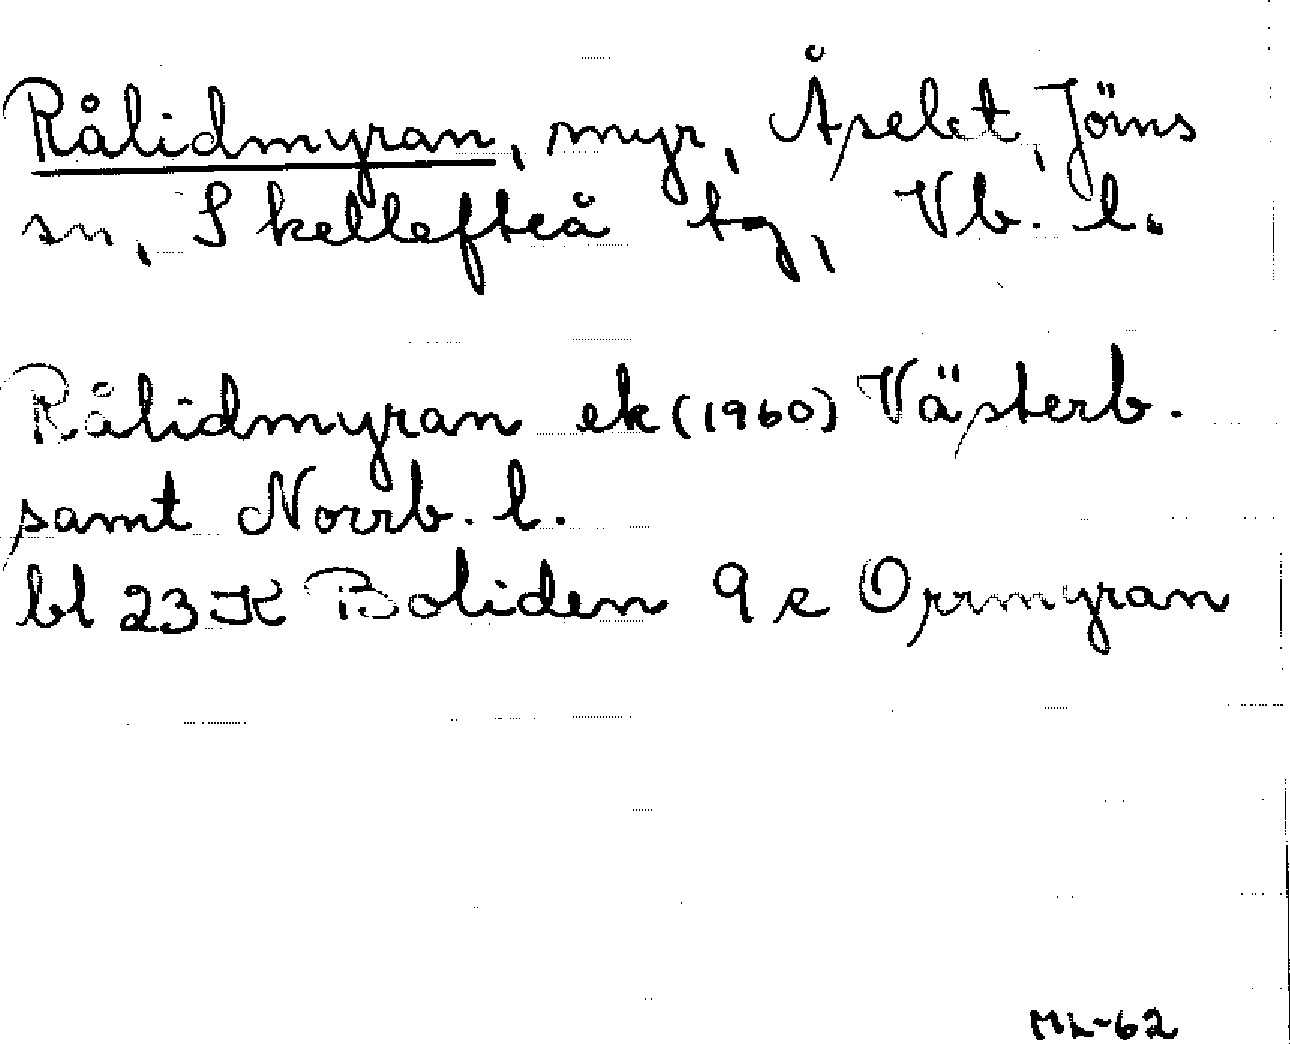 Rålidmyran, myr, Åselet, Jörns
sn, Skellefteå tg, Vb. l.
Rålidmyran ek (1960) Västerb.
samt Norrb. l.
bl 23 K Boliden 9 e Orrmyran
ML-62